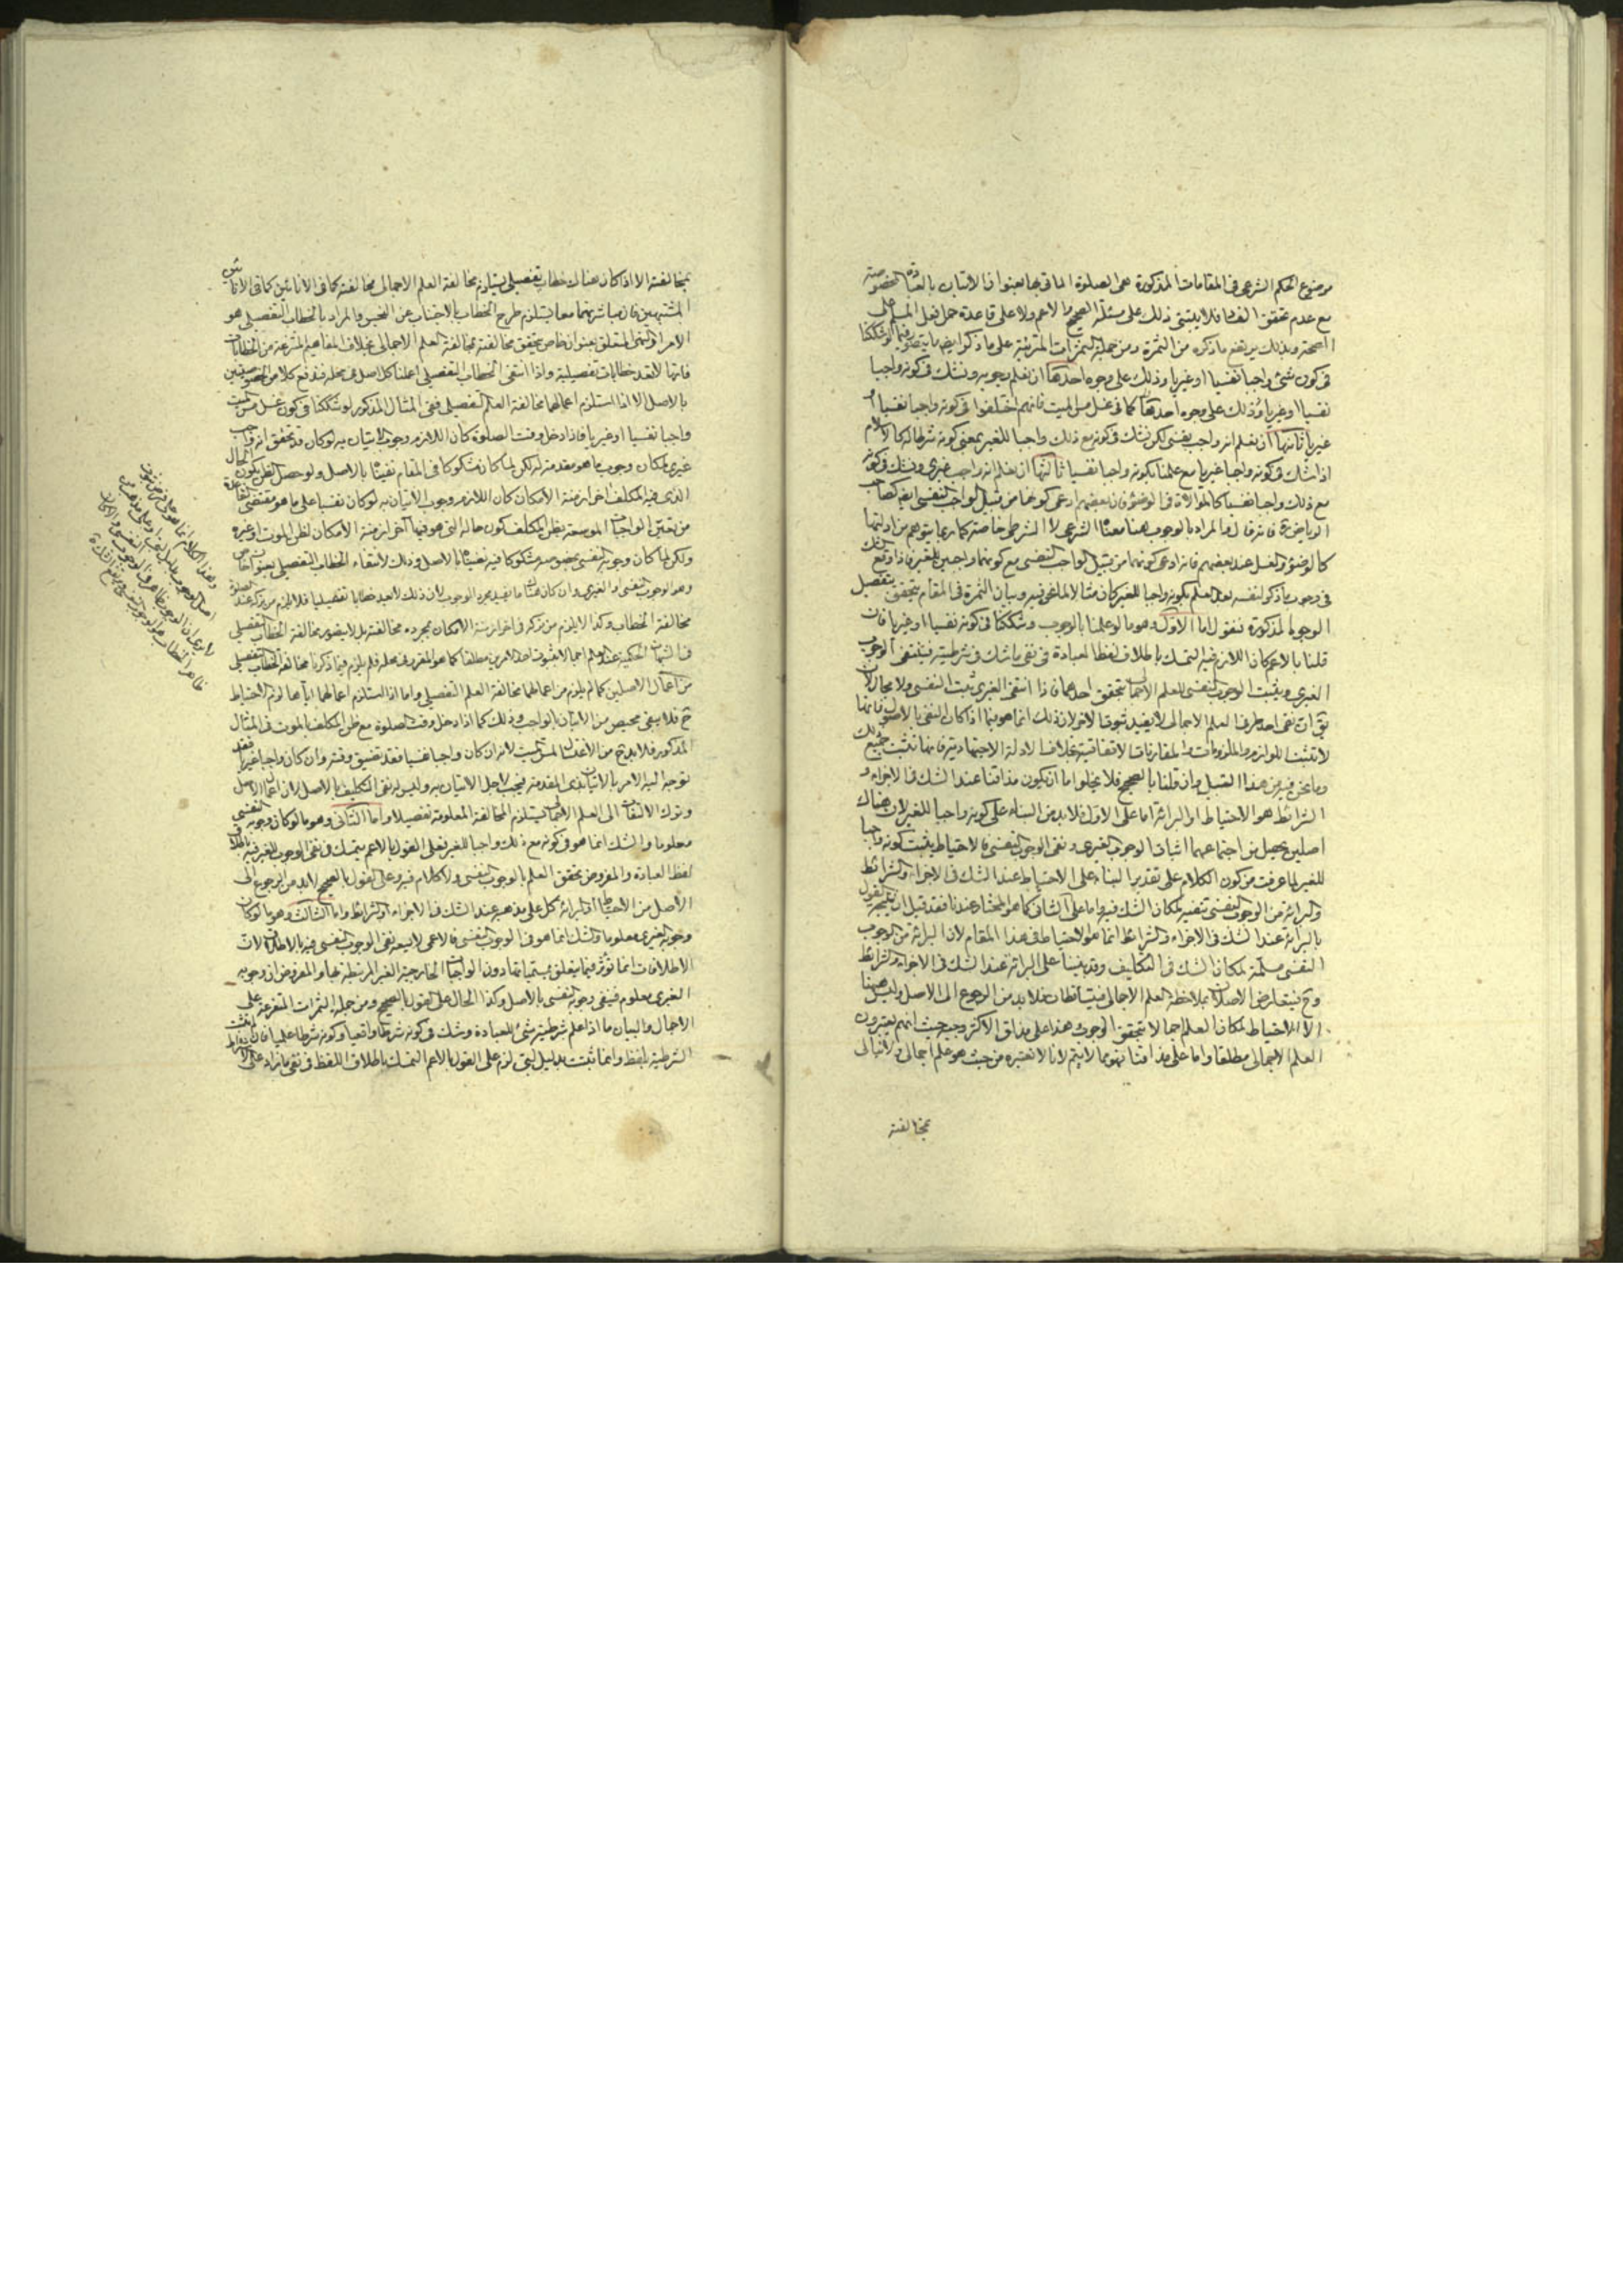 موضوع الحكم الشرعي في المقامات المذكورة هى الصلوة الماتي بها بعنوان الاتيان بالعبادة المخصوصة
مع عدم تحقق الفساد فلا يبتنى ذلك على مسئلة الصحيح والاعم ولا على قاعدة حمل فعل المسلم على
الصحة وبذلك يرتفع ما ذكره من الثمرة ومن جملة الثمرات المترتبة على ما ذكر ايضا ما يتصور فيما لو شككنا
فى كون شئ واجبا نفسيا او غيريا وذلك على وجوه احدها ان نعلم بوجوبه ونشك فى كونه واجبا
نفسيا او غيريا وذلك على وجوه احدها كما فى غسل مس الميت فانهم اختلفوا فى كونه واجبا نفسيا او
غيريا ثانيها ان نعلم انه واجب نفسى لكن نشك فى كونه مع ذلك واجبا للغير بمعنى كونه شرطا له كالاسلام
اذا شك فى كونه واجبا غيريا مع علمنا بكونه واجبا نفسيا ثالثها ان نعلم انه واجب غيرى ونشك فى كونه
مع ذلك واجبا نفسيا كالموالاة فى الوضوء فان بعضهم ادعى كونها من قبيل الواجب النفسى ايضا كصاحب
الرياض ره فانه قال والمراد بالوجوب هنا معناه الشرعى لا الشرطى خاصة كما ربما يتوهم من ادلتها
كالوضوء والغسل عند بعضهم فانه ادعى كونهما من قبيل الواجب النفسى مع كونهما واجبين للغير فاذا وقع الشك
فى وجوب ما ذكر لنفسه بعد العلم بكونه واجبا للغير كان مثالا لما نحن فيه وبيان الثمرة فى المقام يتحقق بتفصيل
الوجوه المذكورة فنقول اما الاول وهو ما لو علمنا بالوجوب وشككنا فى كونه نفسيا او غيريا فان
قلنا بالاعم كان اللازم فيه التمسك باطلاق لفظ العبادة فى نفى ما شك فى شرطيته فينتفى الوجوب
الغيرى ويثبت الوجوب النفسى للعلم الاجمالى بتحقق احدهما فاذا انتفى الغيرى ثبت النفسى ولا مجال لان
يق ان نفى احد طرفى العلم الاجمالى لا يفيد ثبوتا لاخر لان ذلك انما هو فيما اذا كان النفى بالاصول فانها
لا تثبت اللوازم والملزومات والمقارنات الاتفاقية بخلاف الادلة الاجتهادية فانها تثبت جميع ذلك
وما نحن فيه من هذا القبيل وان قلنا بالصحيح فلا يخلوا اما ان يكون مذاقنا عند الشك فى الاجزاء و
الشرائط هو الاحتياط او البرائة اما على الاول فلابد من البناء على كونه واجبا للغير لان هناك
اصلين يحصل من اجتماعهما اثبات الوجوب الغيرى ونفى الوجوب النفسى فالاحتياط يثبت كونه واجبا
للغير لما عرفت من كون الكلام على تقدير البناء على الاحتياط عند الشك فى الاجزاء والشرائط
والبرائة من الوجوب النفسى تنفيه لمكان الشك فيه واما على الثانى كما هو المختار عندنا فقد قيل ان نتيجة القول
بالبرائة عند الشك فى الاجزاء والشرائط انما هو الاحتياط فى هذا المقام لان البرائة من الوجوب
النفسى مسلمة لمكان الشك فى التكليف وقد بنينا على البرائة عند الشك فى الاجزاء والشرائط
وح فيتعارض الاصلان بملاحظة العلم الاجمالى فيتساقطان فلا بد من الرجوع الى الاصل وليس هيهنا
الا الاحتياط لمكان العلم اجمالا بتحقق الوجوب هذا على مذاق الاكثر وجيه حيث انهم يعتبرون
العلم الاجمالى مطلقا واما على مذاقنا فهو مما لا يتم لانا لا نعتبره من حيث هو علم اجمالى ولا نبالى
بمخالفته
بمخالفته الا اذا كان هناك خطاب تفصيلى يستلزم مخالفة العلم الاجمالى مخالفته كما فى الانائين كما فى الانائين
المشتبهين فان مباشرتهما معا يستلزم طرح الخطاب بالاجتناب عن النجس والمراد بالخطاب التفصيلى هو
الامر او النهى المتعلق بعنوان خاص يتحقق مخالفته بمخالفة العلم الاجمالى بخلاف المفاهيم المنتزعة من الخطابات
فانها لا تعد خطابات تفصيلية واذا انتفى الخطاب التفصيلى اعلنا كل اصل فى محله فندفع كلا من الخصوصيتين
بالاصل الا اذا استلزم اعمالهما مخالفة العلم التفصيلى ففى المثال المذكور لو شككنا فى كون غسل مس الميت
واجبا نفسيا او غيريا فاذا دخل وقت الصلوة كان اللازم وجوب الاتيان به لو كان قد تحقق انه واجب
غيرى لمكان وجوب ما هو مقدمة له لكن لما كان مشكوكا فى المقام نفيناه بالاصل ولو حصل الظن بكون الحال
الذى فيه المكلف اخر ازمنة الامكان كان اللازم وجوب الاتيان به لو كان نفسيا على ما هو مقتضى القاعدة
من تعين الواجبات الموسعة بظن المكلف كون حاله التى هو فيها آخر ازمنة الامكان لظن الموت او غيره
ولكن لما كان وجوبه النفسى بخصوصه مشكوكا فيه نفيناه بالاصل وذلك لانتفاء الخطاب التفصيلى بعنوان خاص
وهو الوجوب النفسى او الغيرى وان كان هناك ما يفيد مجرد الوجوب لان ذلك لا يعد خطابا تفصيليا فلا يلزم من تركه عند الصلوة
مخالفة الخطاب وكذا لا يلزم من تركه فى اخر ازمنة الامكان بمجرده مخالفته بل لا يتصور مخالفة الخطاب التفصيلى
فى الشبهات الحكمية عند العلم اجمالا بثبوت احد الامرين مطلقا كما هو المقرر فى محله فلم يلزم فيما ذكرنا مخالفة الخطاب التفصيلى
من اعمال الاصلين كما لم يلزم من اعمالهما مخالفة العلم التفصيلى واما اذا استلزم اعمالهما اياها لزم الاحتياط
ح فلا يبقى محيص من الاتيان بالواجب وذلك كما اذا دخل وقت الصلوة مع ظن المكلف بالموت فى المثال
المذكور فلابد ح من الاغتسال لمس الميت لانه ان كان واجبا نفسيا فقد تضيق وقته وان كان واجبا غيريا فقد
توجه اليه الامر بالاتيان بذى المقدمة فيجب لاجل الاتيان به وليس له نفى التكليف بالاصل لان اعمال الاصل
وترك الالتفات الى العلم الاجمالى يستلزم المخالفة المعلومة تفصيلا واما الثانى وهو ما لو كان وجوبه النفسى
معلوما والشك انما هو فى كونه مع ذلك واجبا للغير فعلى القول بالاعم يتمسك فى نفى الوجوب للغير فيه باطلاق
لفظ العبادة والمفروض تحقق العلم بالوجوب النفسى ولا كلام فيه وعلى القول بالصحيح لابد من الرجوع الى
الاصل من الاحتياط او البرائة كل على مذهبه عند الشك فى الاجزاء او الشرائط واما الثالث وهو ما لو كان
وجوبه الغيرى معلوما والشك انما هو فى الوجوب النفسى فالاعمى لا يسعه نفى الوجوب النفسى فيه بالاطلاق لان
الاطلاقات انما تؤثر فيما يتعلق بمسمياتها دون الواجبات الخارجية الغير المرتبطة بها والمفروض ان وجوبه
الغيرى معلوم فينفى وجوبه النفسى بالاصل وكذا الحال على القول بالصحيح ومن جملة الثمرات المتفرعة على
الاجمال والبيان ما اذا علم شرطية شئ للعبادة وشك فى كونه شرطا واقعيا او كونه شرطا علميا فان لم يثبت
الشرطية بلفظ وانما ثبت بدليل لبى لزم على القول بالاعم التمسك باطلاق اللفظ فى نفى ما زاد على